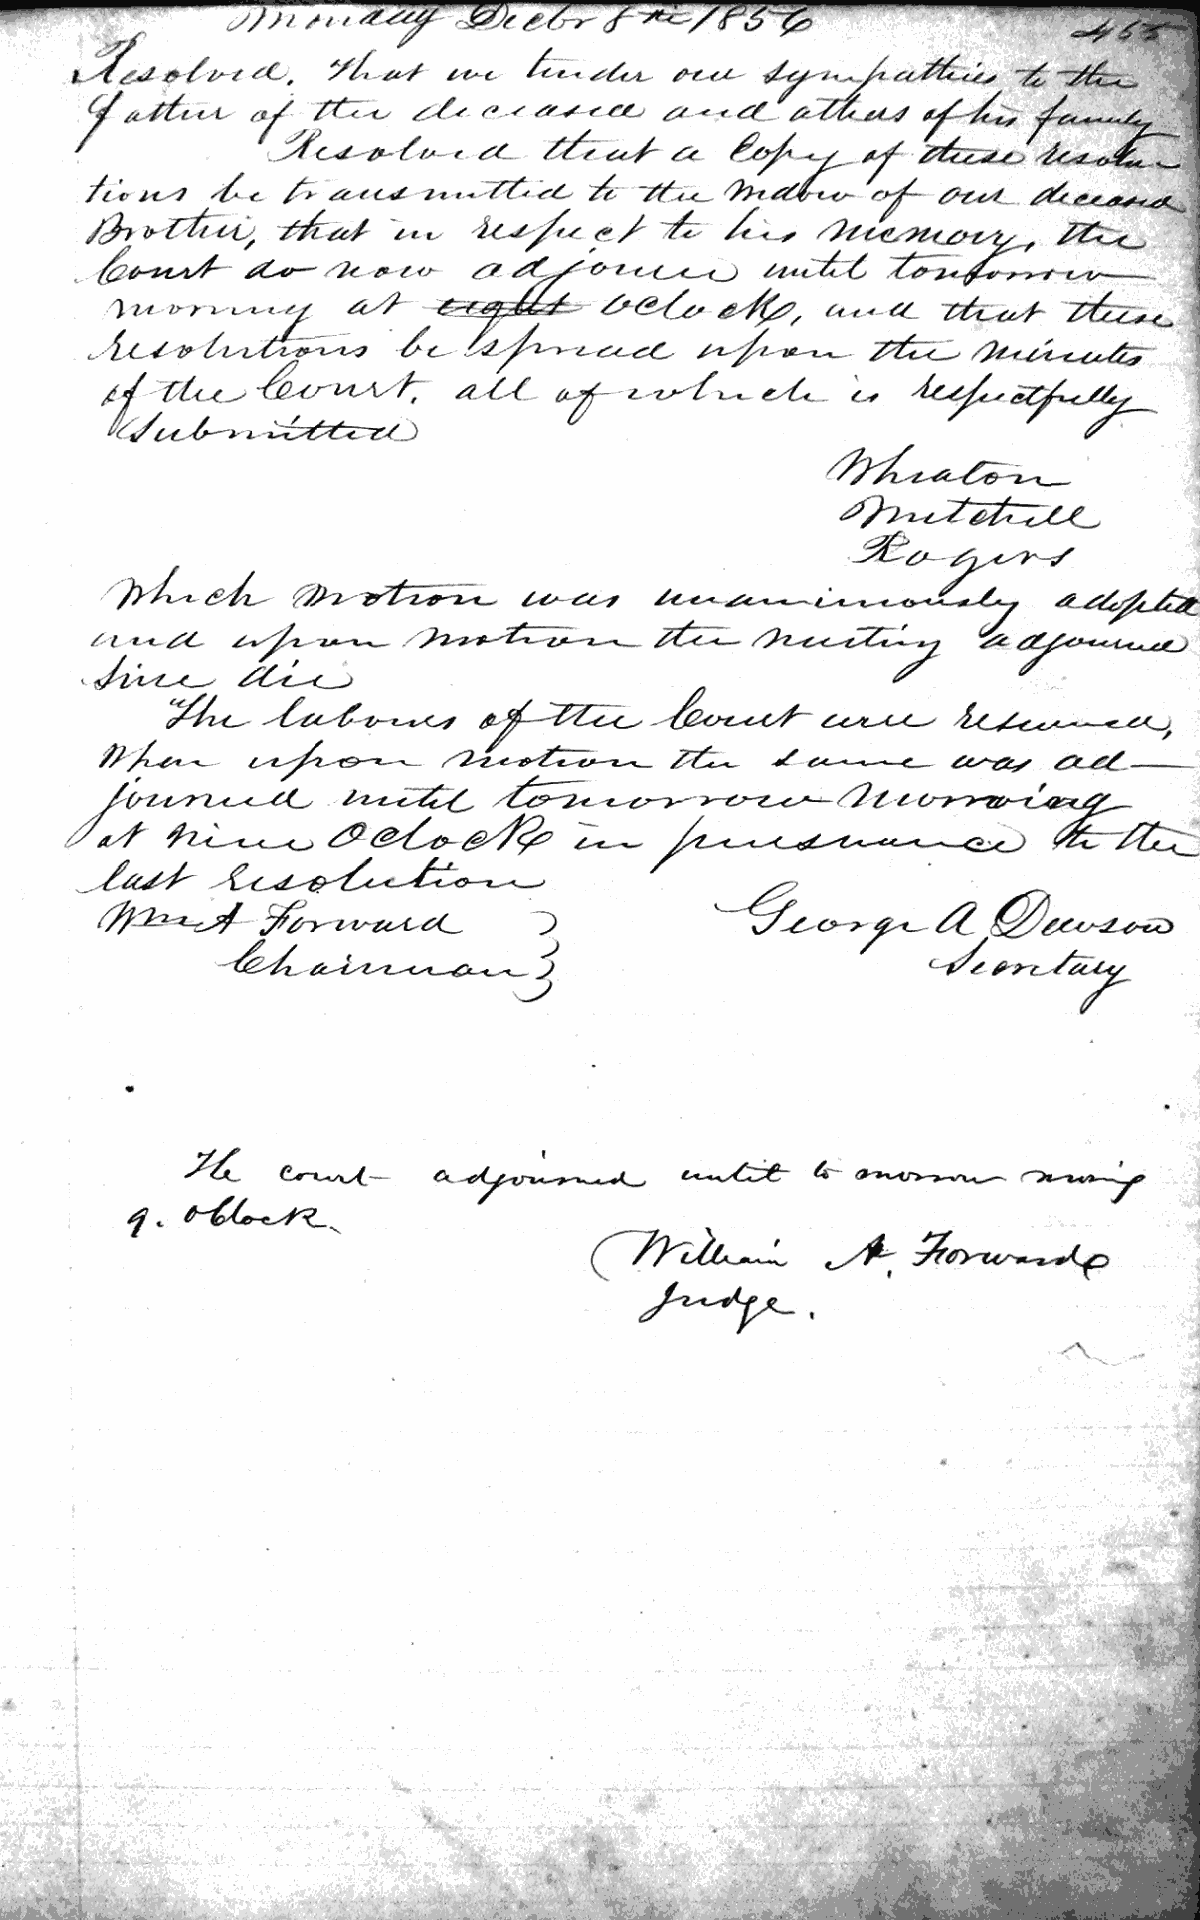 Monday Decbr 8th 1856 455
Resolved. That we tender our sympathies to the
father of the deceased and others of his family
Resolved that a Copy of these resolu
tions be transmitted to the Widow of our deceased
Brother, that in respect to his memory, the
Court do now adjourn until tomorrow
morning at eight Oclock, and that these
resolutions be spread upon the minutes
of the Court, all of which is respectfully
Submitted
Wheaton
Mitchell
Rogers
Which motion was unanimously adopted
and upon motion the meeting adjourned
Sine die
The labours of the Court were resumed,
When upon motion the same was ad-
journed until tomorrow morning
at nine Oclock in pursuance to the
last resolution
Wm A Forward George A Dawson
Chairman Secretary
The court adjourned until to morrow morning
9. oClock.
William A. Forward
Judge.